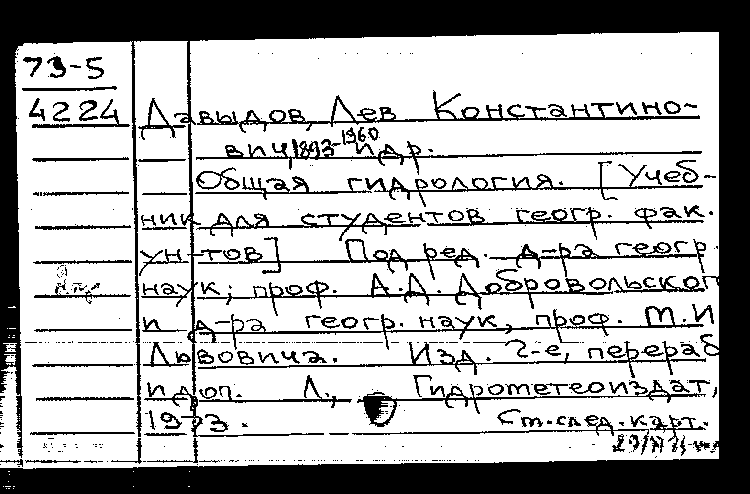 73-5
4224
Давыдов, Лев Константино-
вич, 1893-1960 и др.
Общая гидрология. [Учеб-
ник для студентов геогр. фак.
ун-тов] Под ред. д-ра геогр.
наук, проф. А.Д. Добровольског
и д-ра геогр. наук, проф. М.И
Львовича. Изд. 2-е, перераб
и доп. Л., Гидрометеоиздат,
1973. См. след. карт.